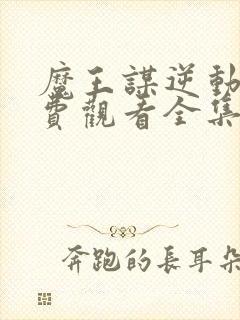 魔王謀逆動
費觀看全集
奔跑的長耳朵